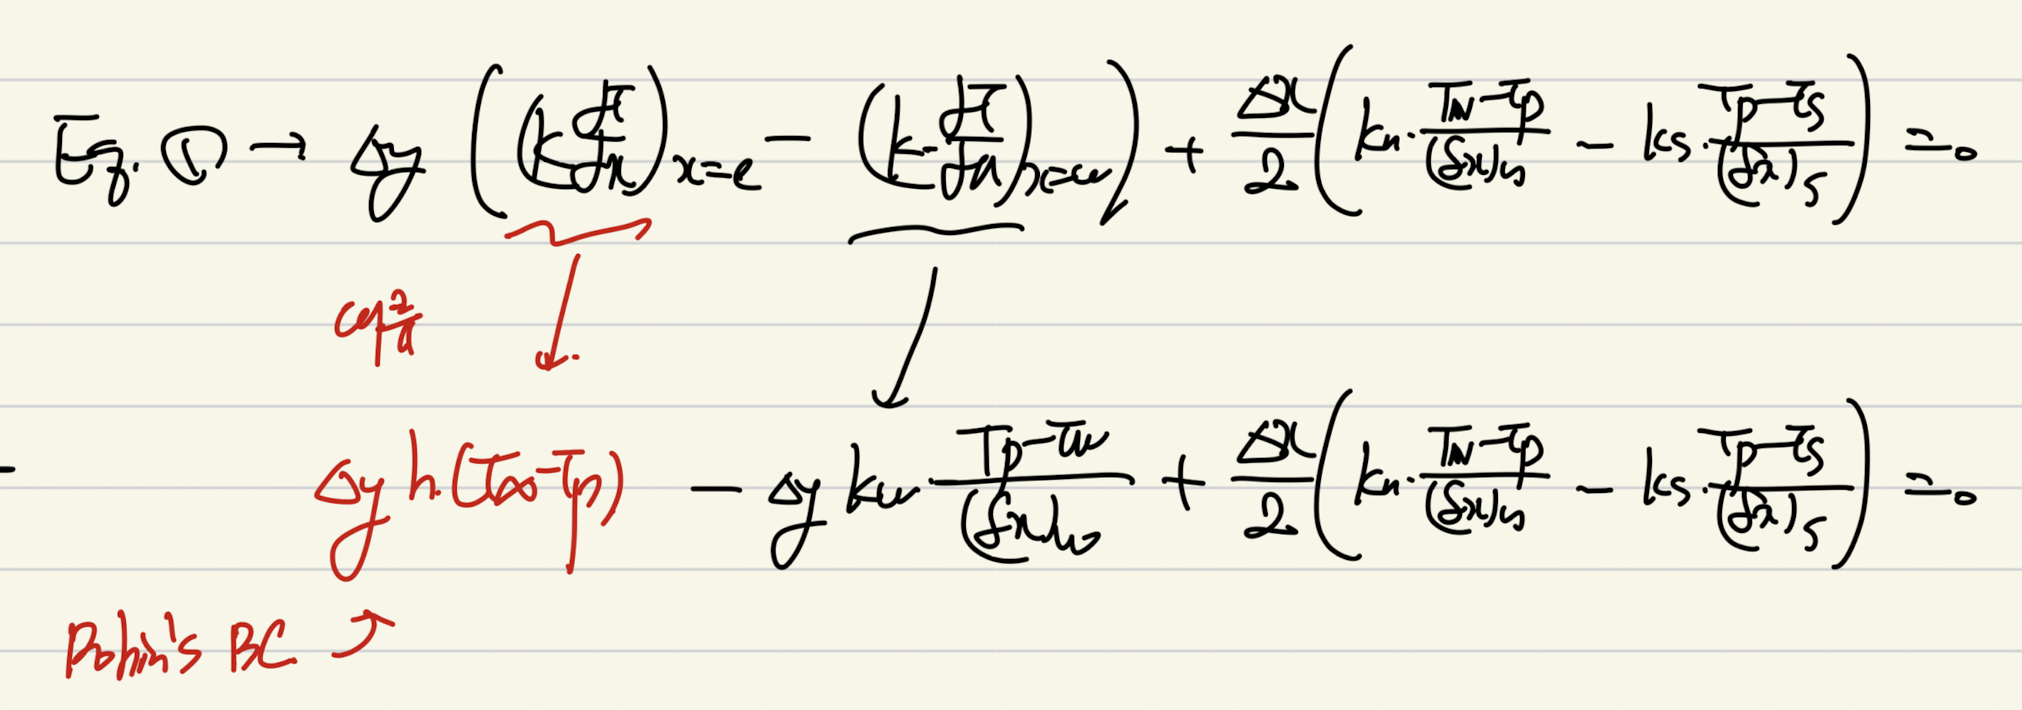 Eq. ① → Δy ( (k dT/dx)x=e − (k dT/dx)x=w ) + Δx/2 ( kn · TN−Tp/(δx)n − ks · Tp−Ts/(δx)s ) = 0
Δy h. (T∞−Tp) − Δy kw · Tp−Tw/(δx)w + Δx/2 ( kn · TN−Tp/(δx)n − ks · Tp−Ts/(δx)s ) = 0
Robin's BC